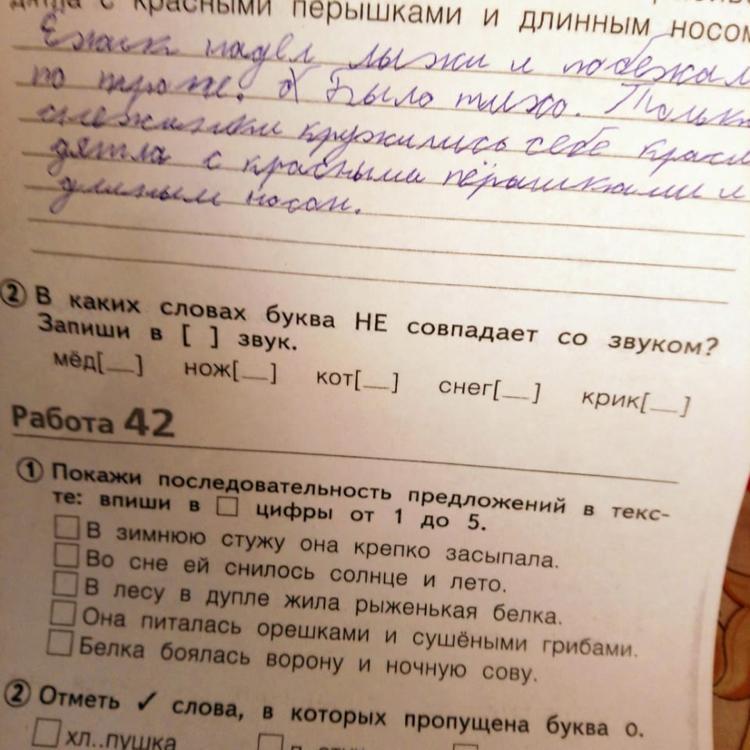 с красными пёрышками и длинным носом
Ёжик надел лыжи и побежал
по тропе. Было тихо. Только
снежинки кружились себе
дятла с красными пёрышками и
длиным носом.
2 В каких словах буква НЕ совпадает со звуком?
Запиши в [ ] звук.
мёд[__] нож[__] кот[__] снег[__] крик[__]
Работа 42
1 Покажи последовательность предложений в текс-
те: впиши в □ цифры от 1 до 5.
□ В зимнюю стужу она крепко засыпала.
□ Во сне ей снилось солнце и лето.
□ В лесу в дупле жила рыженькая белка.
□ Она питалась орешками и сушёными грибами.
□ Белка боялась ворону и ночную сову.
2 Отметь ✓ слова, в которых пропущена буква о.
□ хл..пушка